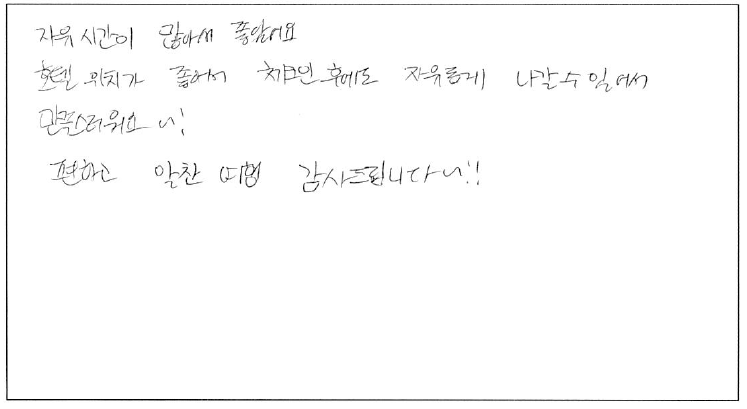 자유시간이 많아서 좋았어요
호텔 위치가 좋아서 체크인 후에도 자유롭게 나갈 수 있어서
만족스러워요 ^^!
편하고 알찬 여행 감사드립니다 ^^!!